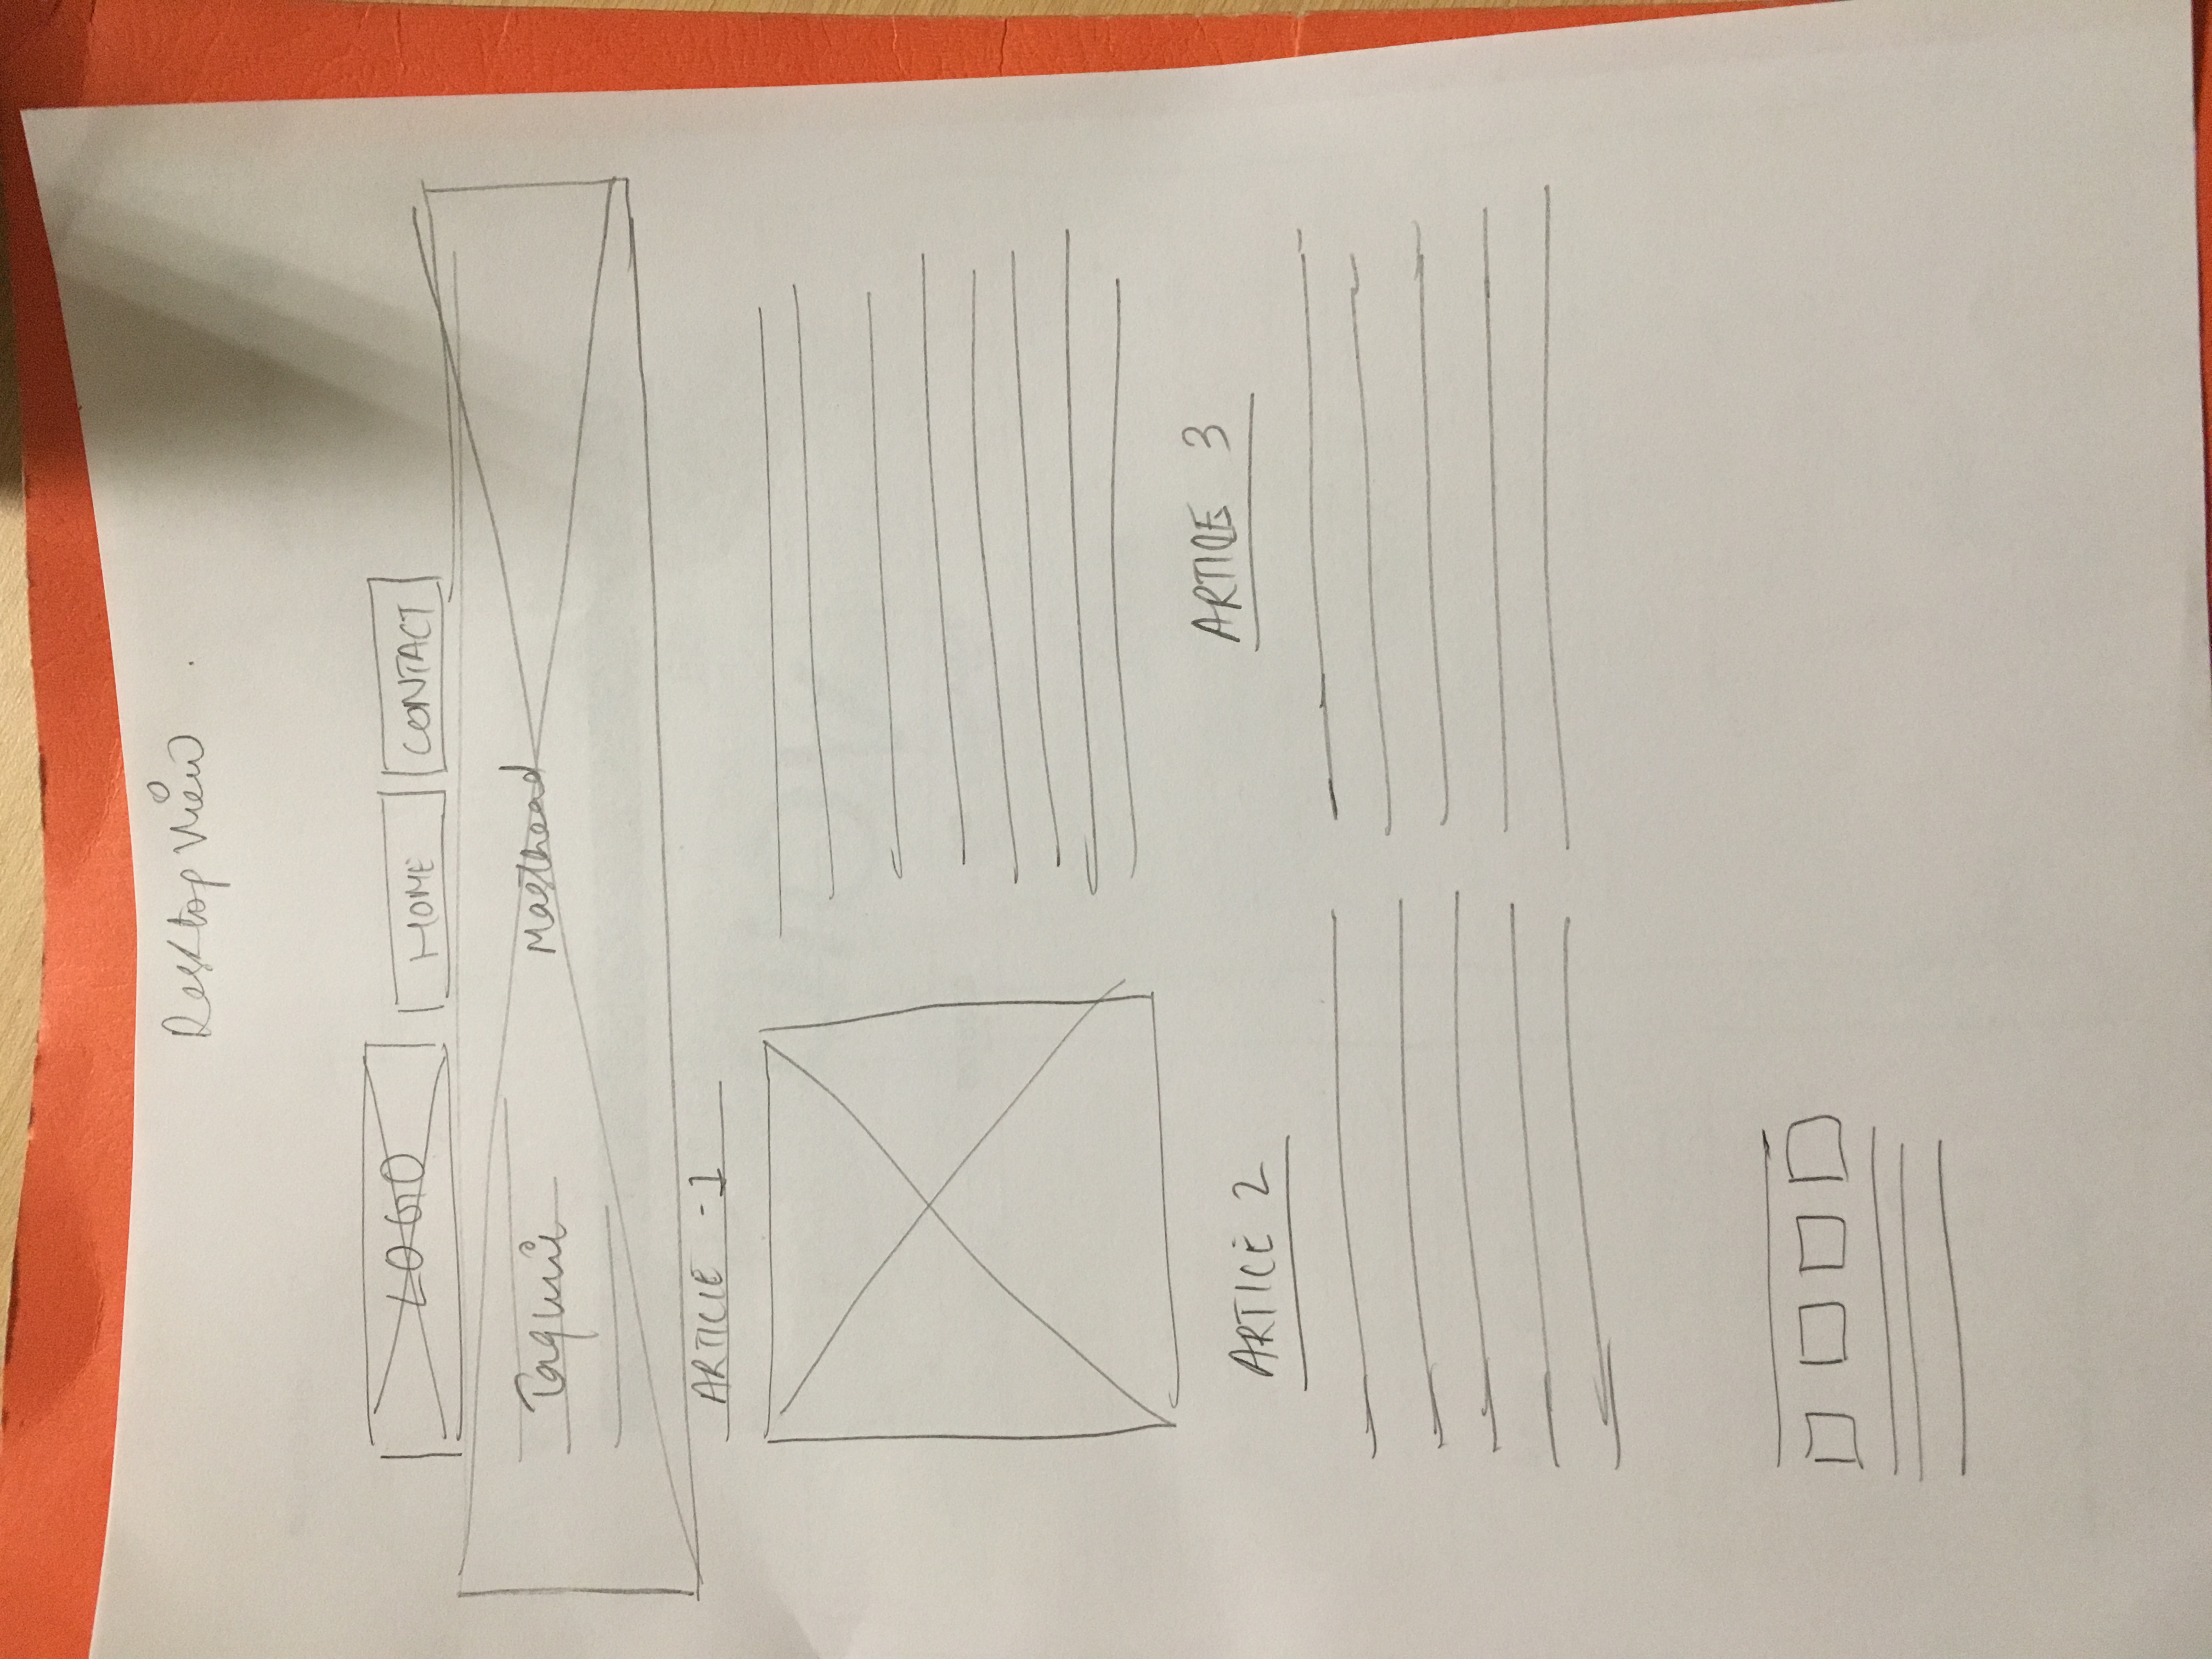 Desktop View
LOGO HOME CONTACT
Masthead
Tagline
ARTICLE - 1
ARTICLE 2 ARTICLE 3